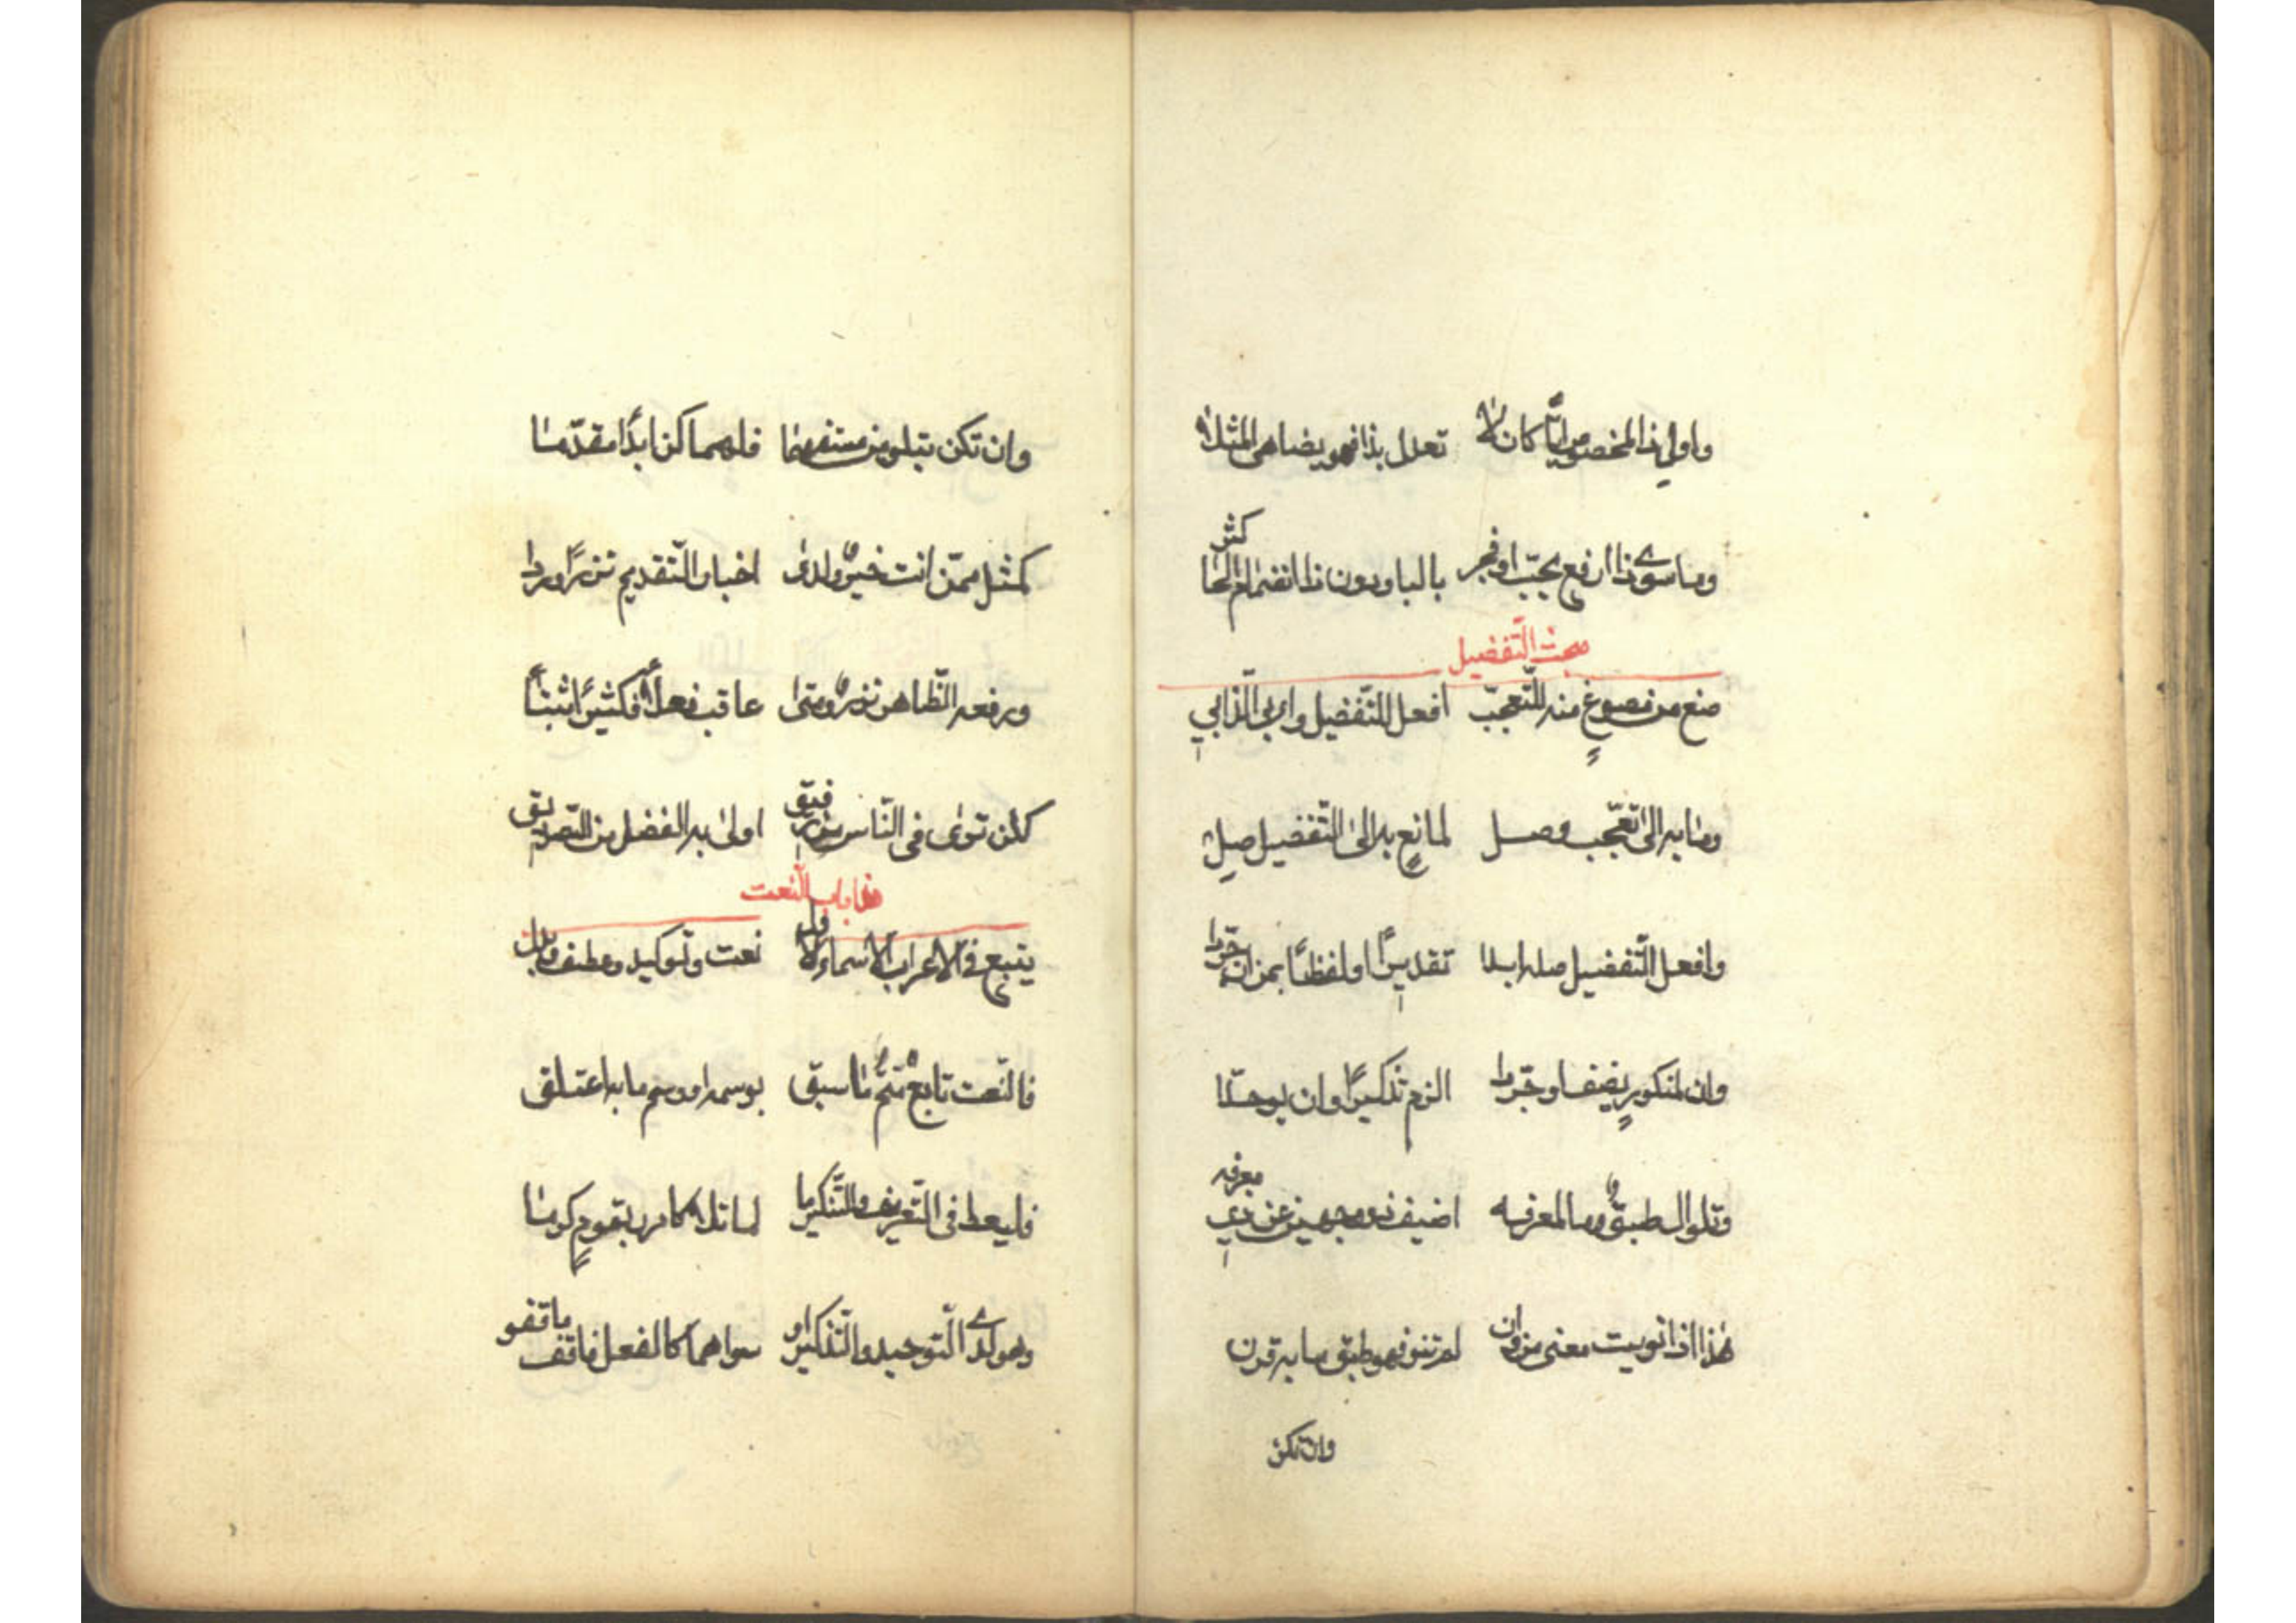 واول ذا المخصوص ايّا كان لا تعدل بذا فهو يضاهى المثلا
وما سوى ذا ارفع بحبّ او فجر بالبا ودون ذا انضمام الحا كثر
مبحث التّفضيل
صغ من مصوغٍ منه للتّعجّب افعل للتّفضيل واب الّذ ابي
وما به الى تعجّب وصل لمانعٍ به الى التّفضيل صل
وافعل التّفضيل صله ابدا تقديرًا او لفظًا بمن ان جرّدا
وان لمنكورٍ يضف او جرّدا الزم تذكيرًا وان يوحدّا
وتلو ال طبقٌ وما لمعرفه اضيف ذو وجهين عن ذي معرفه
هذا اذا نويت معنى من وان لم تنو فهو طبق ما به قرن
وان تكن
وان تكن بتلو من مستفهما فلهما كن ابدًا مقدّما
كمثل ممّن انت خيرٌ ولدى اخبار التّقديم نزرًا وردا
ورفعه الظّاهر نزرٌ ومتى عاقب فعلًا فكثيرًا ثبتا
كلن ترى في النّاس من رفيق اولى به الفضل من الصّديق
هذا باب النّعت
يتبع في الاعراب الاسماء الاول نعت وتوكيد وعطف وبدل
فالنّعت تابعٌ متمٌّ ما سبق بوسمه او وسم ما به اعتلق
فليعط في التّعريف والتّنكير ما لما تلا كامرر بقومٍ كرما
وهو لدى التّوحيد والتّذكير او سواهما كالفعل فاقف ما قفو